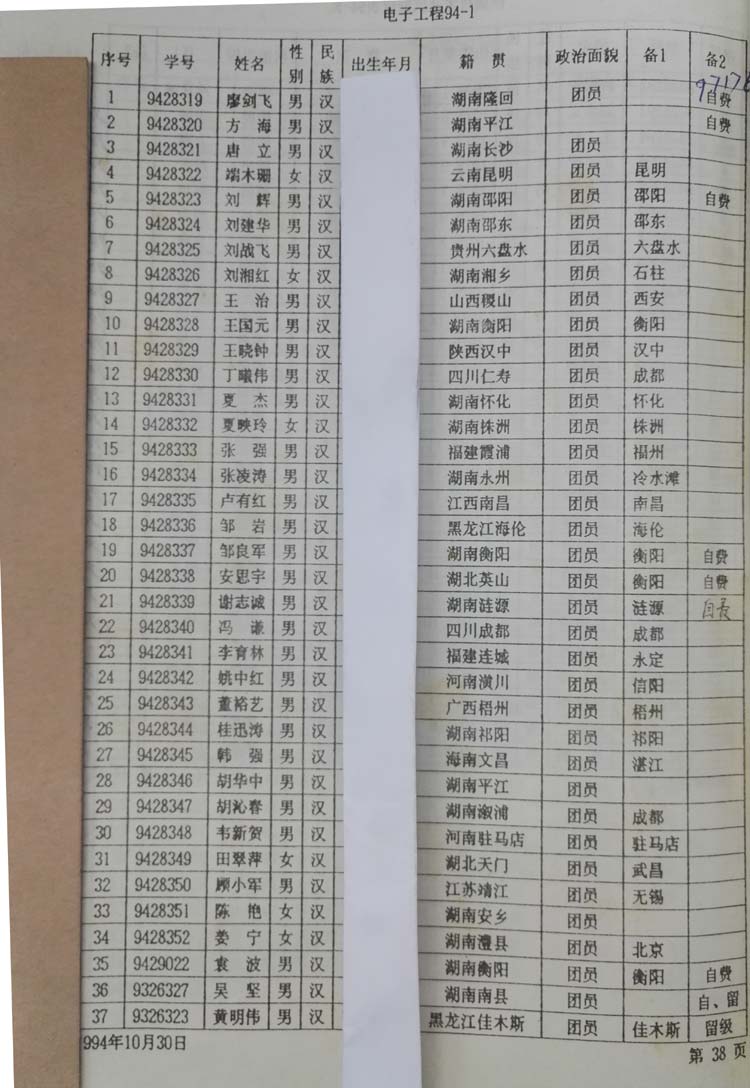 电子工程94-1
序号 学号 姓名 性别 民族 出生年月 籍贯 政治面貌 备1 备2
97176
1 9428319 廖剑飞 男 汉 湖南隆回 团员 自费
2 9428320 方海 男 汉 湖南平江 自费
3 9428321 唐立 男 汉 湖南长沙 团员
4 9428322 端木珊 女 汉 云南昆明 团员 昆明
5 9428323 刘辉 男 汉 湖南邵阳 团员 邵阳 自费
6 9428324 刘建华 男 汉 湖南邵东 团员 邵东
7 9428325 刘战飞 男 汉 贵州六盘水 团员 六盘水
8 9428326 刘湘红 女 汉 湖南湘乡 团员 石柱
9 9428327 王治 男 汉 山西稷山 团员 西安
10 9428328 王国元 男 汉 湖南衡阳 团员 衡阳
11 9428329 王晓钟 男 汉 陕西汉中 团员 汉中
12 9428330 丁曦伟 男 汉 四川仁寿 团员 成都
13 9428331 夏杰 男 汉 湖南怀化 团员 怀化
14 9428332 夏映玲 女 汉 湖南株洲 团员 株洲
15 9428333 张强 男 汉 福建霞浦 团员 福州
16 9428334 张凌涛 男 汉 湖南永州 团员 冷水滩
17 9428335 卢有红 男 汉 江西南昌 团员 南昌
18 9428336 邹岩 男 汉 黑龙江海伦 团员 海伦
19 9428337 邹良军 男 汉 湖南衡阳 团员 衡阳 自费
20 9428338 安思宇 男 汉 湖北英山 团员 衡阳 自费
21 9428339 谢志诚 男 汉 湖南涟源 团员 涟源 自费
22 9428340 冯谦 男 汉 四川成都 团员 成都
23 9428341 李育林 男 汉 福建连城 团员 永定
24 9428342 姚中红 男 汉 河南潢川 团员 信阳
25 9428343 董裕艺 男 汉 广西梧州 团员 梧州
26 9428344 桂迅涛 男 汉 湖南祁阳 团员 祁阳
27 9428345 韩强 男 汉 海南文昌 团员 湛江
28 9428346 胡华中 男 汉 湖南平江 团员
29 9428347 胡沁春 男 汉 湖南溆浦 团员 成都
30 9428348 韦新贺 男 汉 河南驻马店 团员 驻马店
31 9428349 田翠萍 女 汉 湖北天门 团员 武昌
32 9428350 顾小军 男 汉 江苏靖江 团员 无锡
33 9428351 陈艳 女 汉 湖南安乡 团员
34 9428352 姜宁 女 汉 湖南澧县 团员 北京
35 9429022 袁波 男 汉 湖南衡阳 团员 衡阳 自费
36 9326327 吴坚 男 汉 湖南南县 团员 自、留
37 9326323 黄明伟 男 汉 黑龙江佳木斯 团员 佳木斯 留级
994年10月30日 第 38 页